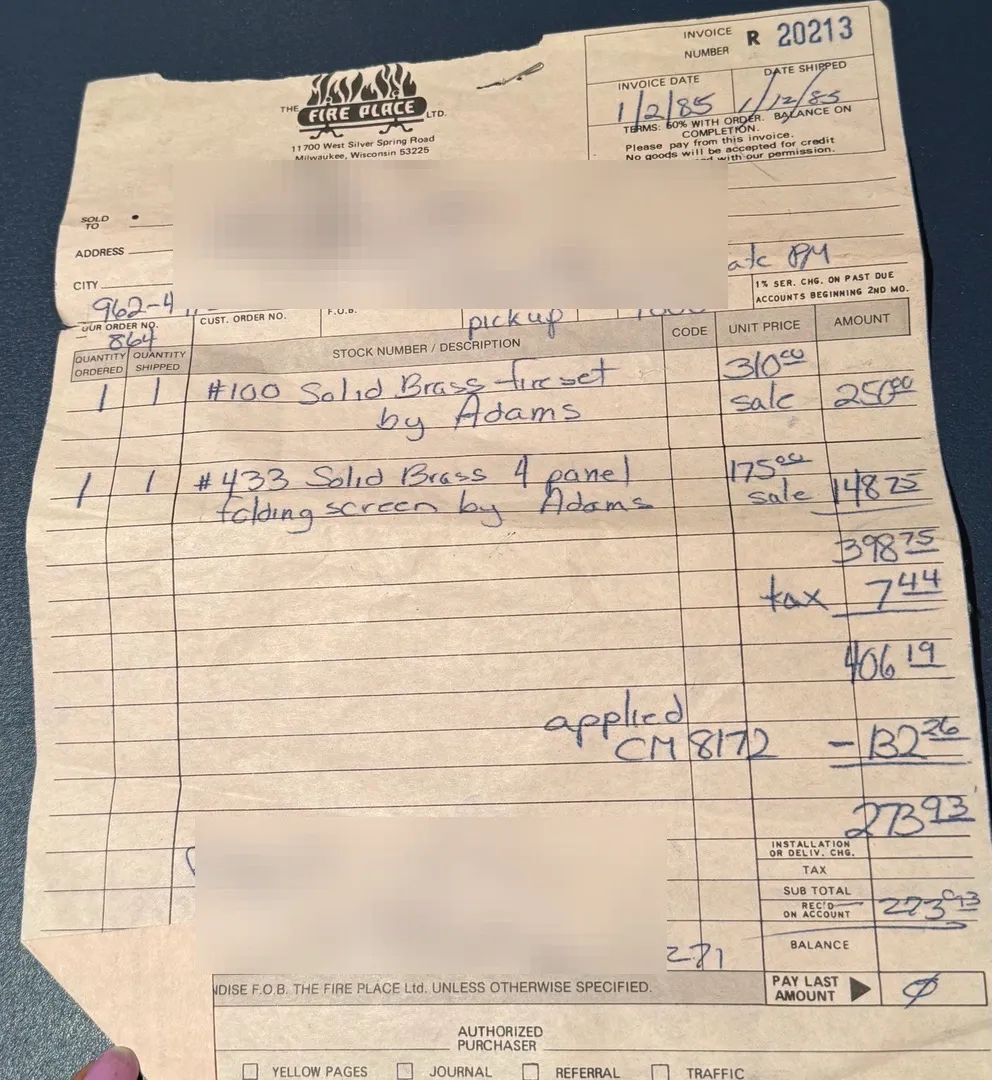 INVOICE NUMBER R 20213
INVOICE DATE
DATE SHIPPED
1/2/85
1/12/85
TERMS: 50% WITH ORDER. BALANCE ON
COMPLETION.
Please pay from this invoice.
No goods will be accepted for credit
with our permission.
THE FIRE PLACE LTD.
11700 West Silver Spring Road
Milwaukee, Wisconsin 53225
SOLD TO
ADDRESS
CITY
PM
1% SER. CHG. ON PAST DUE
ACCOUNTS BEGINNING 2ND MO.
962-4
OUR ORDER NO.
864
CUST. ORDER NO.
F.O.B.
pickup
QUANTITY ORDERED
QUANTITY SHIPPED
STOCK NUMBER / DESCRIPTION
CODE
UNIT PRICE
AMOUNT
1 1 #100 Solid Brass fireset 310.00
by Adams sale 250.00
1 1 #433 Solid Brass 4 panel 175.00
folding screen by Adams sale 148 75
398 75
tax 7 44
406 19
applied
CM 8172 - 132 26
273 93
INSTALLATION
OR DELIV. CHG.
TAX
SUB TOTAL
REC'D
ON ACCOUNT 273 93
271
BALANCE
NDISE F.O.B. THE FIRE PLACE Ltd. UNLESS OTHERWISE SPECIFIED.
PAY LAST
AMOUNT ▶ Ø
AUTHORIZED
PURCHASER
YELLOW PAGES JOURNAL REFERRAL TRAFFIC